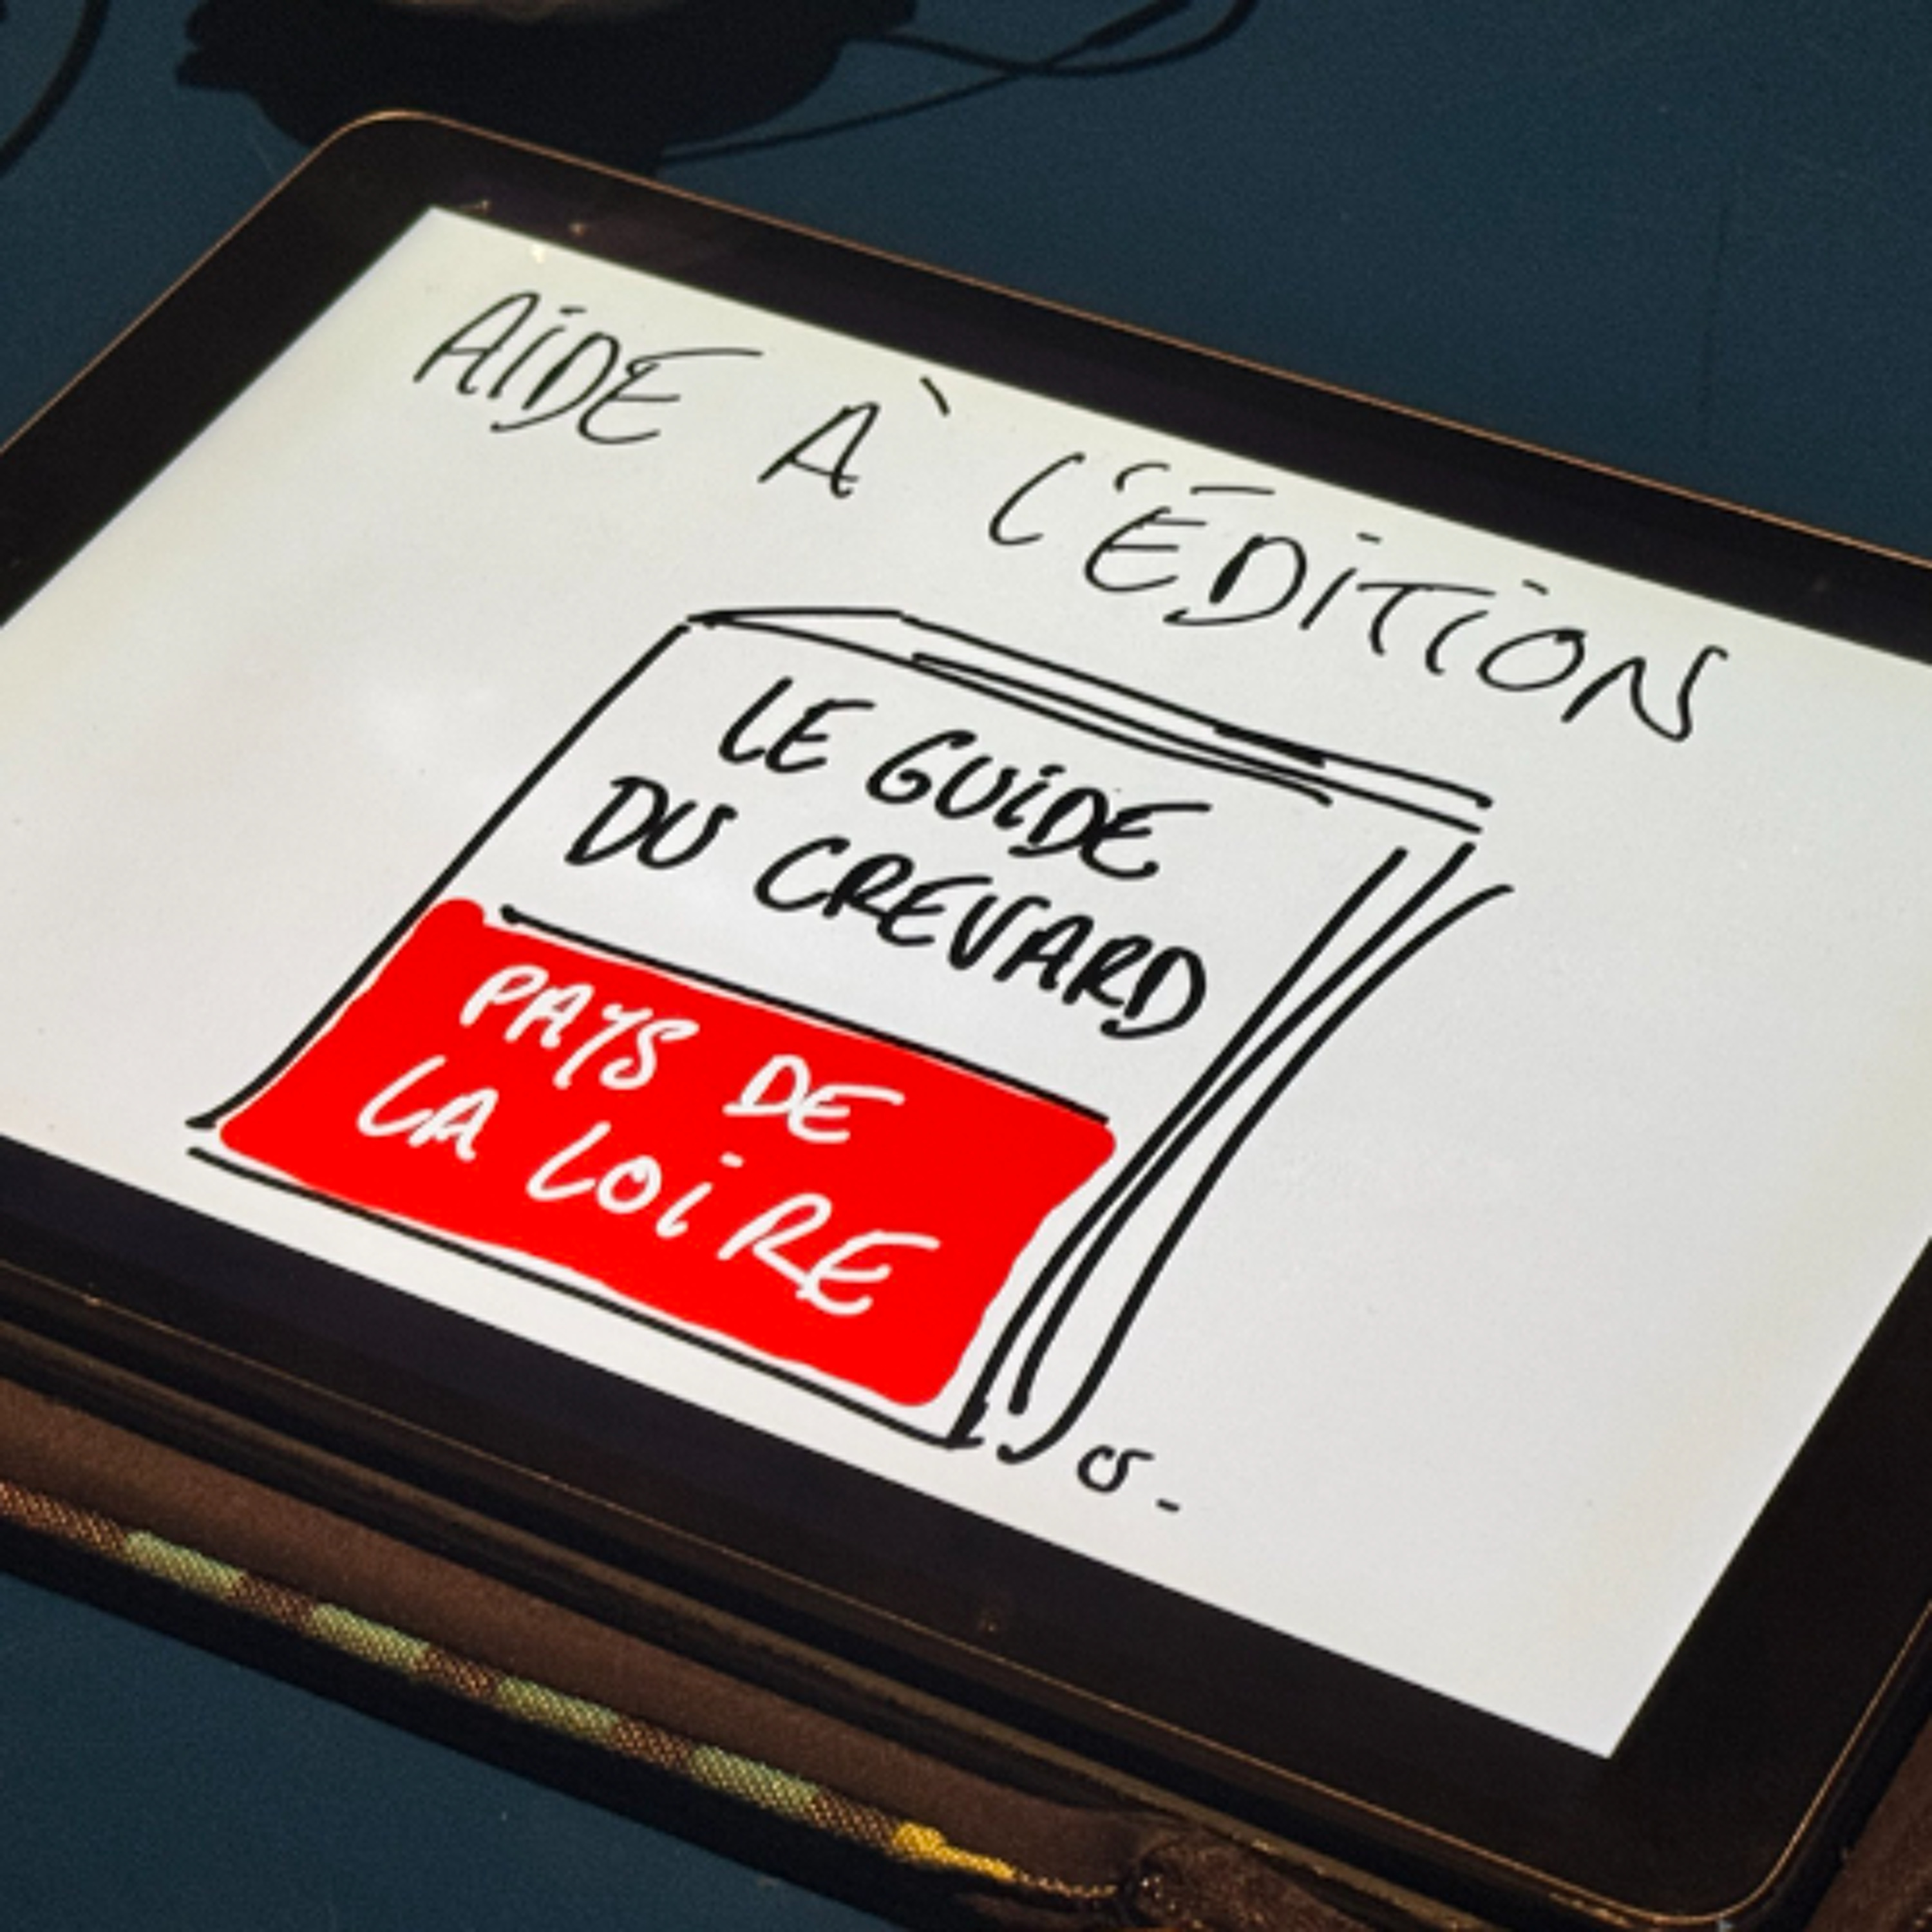 AIDE À L'ÉDITION
LE GUIDE
DU CREVARD
PAYS DE
LA LOIRE